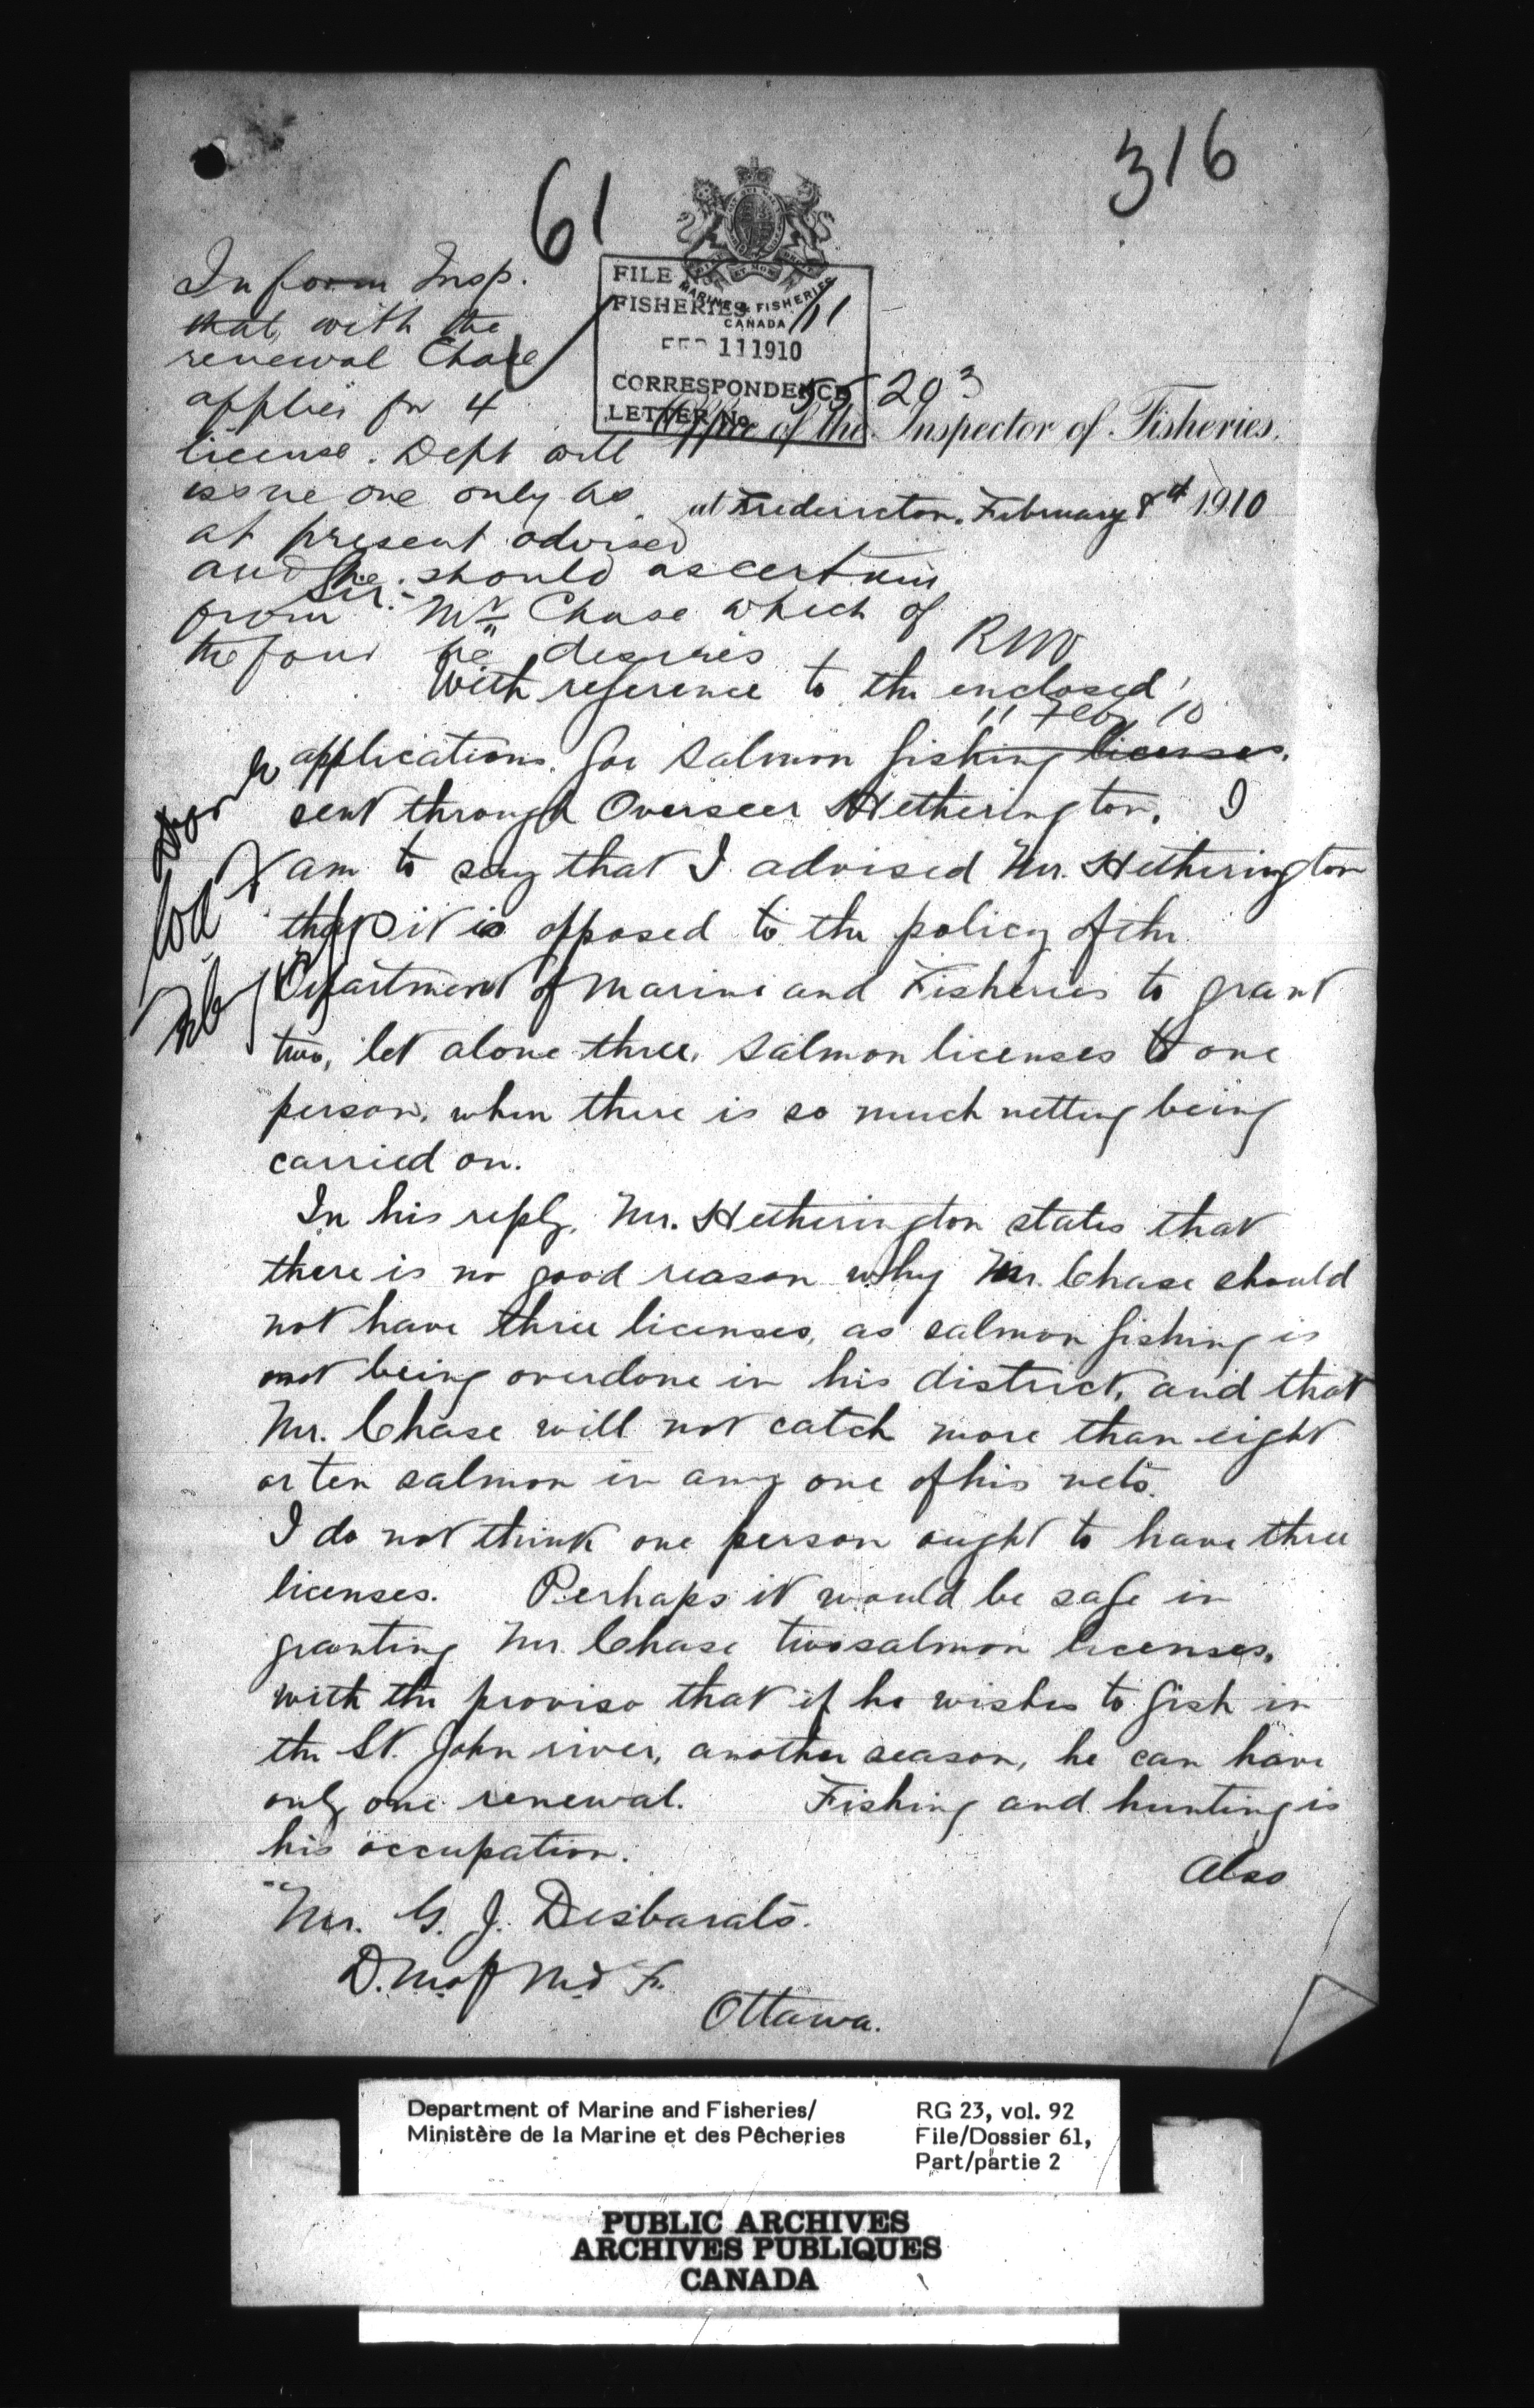 316
61
MARINE & FISHERIES
CANADA
FILE No
FISHERIES
FEB 11 1910
CORRESPONDENCE
LETTER No.
20 3
Inform Insp.
that, with the
renewal Chase
applies for 4
license. Dept will
issue one only as
at present advised
and he should ascertain
from Mr Chase which of
the four he desires
RNV
11 Feby 10
Office of the Inspector of Fisheries.
at Fredericton, February 8th 1910
Sir:-
With reference to the enclosed
applications for salmon fishing licenses.
sent through Overseer Hetherington, I
am to say that I advised Mr. Hetherington
that it is opposed to the policy of the
Department of Marine and Fisheries to grant
two, let alone three, salmon licenses to one
person, when there is so much netting being
carried on.
In his reply, Mr. Hetherington states that
there is no good reason why Mr. Chase should
not have three licenses, as salmon fishing is
not being overdone in his district, and that
Mr. Chase will not catch more than eight
or ten salmon in any one of his nets.
I do not think one person ought to have three
licenses. Perhaps it would be safe in
granting Mr. Chase two salmon licenses,
with the proviso that if he wishes to fish in
the St. John river, another season, he can have
only one renewal. Fishing and hunting is
his occupation.
Also
Mr. G. J. Desbarats.
D. M. of M. & F.
Ottawa.
Department of Marine and Fisheries/
Ministère de la Marine et des Pêcheries
RG 23, vol. 92
File/Dossier 61,
Part/partie 2
PUBLIC ARCHIVES
ARCHIVES PUBLIQUES
CANADA